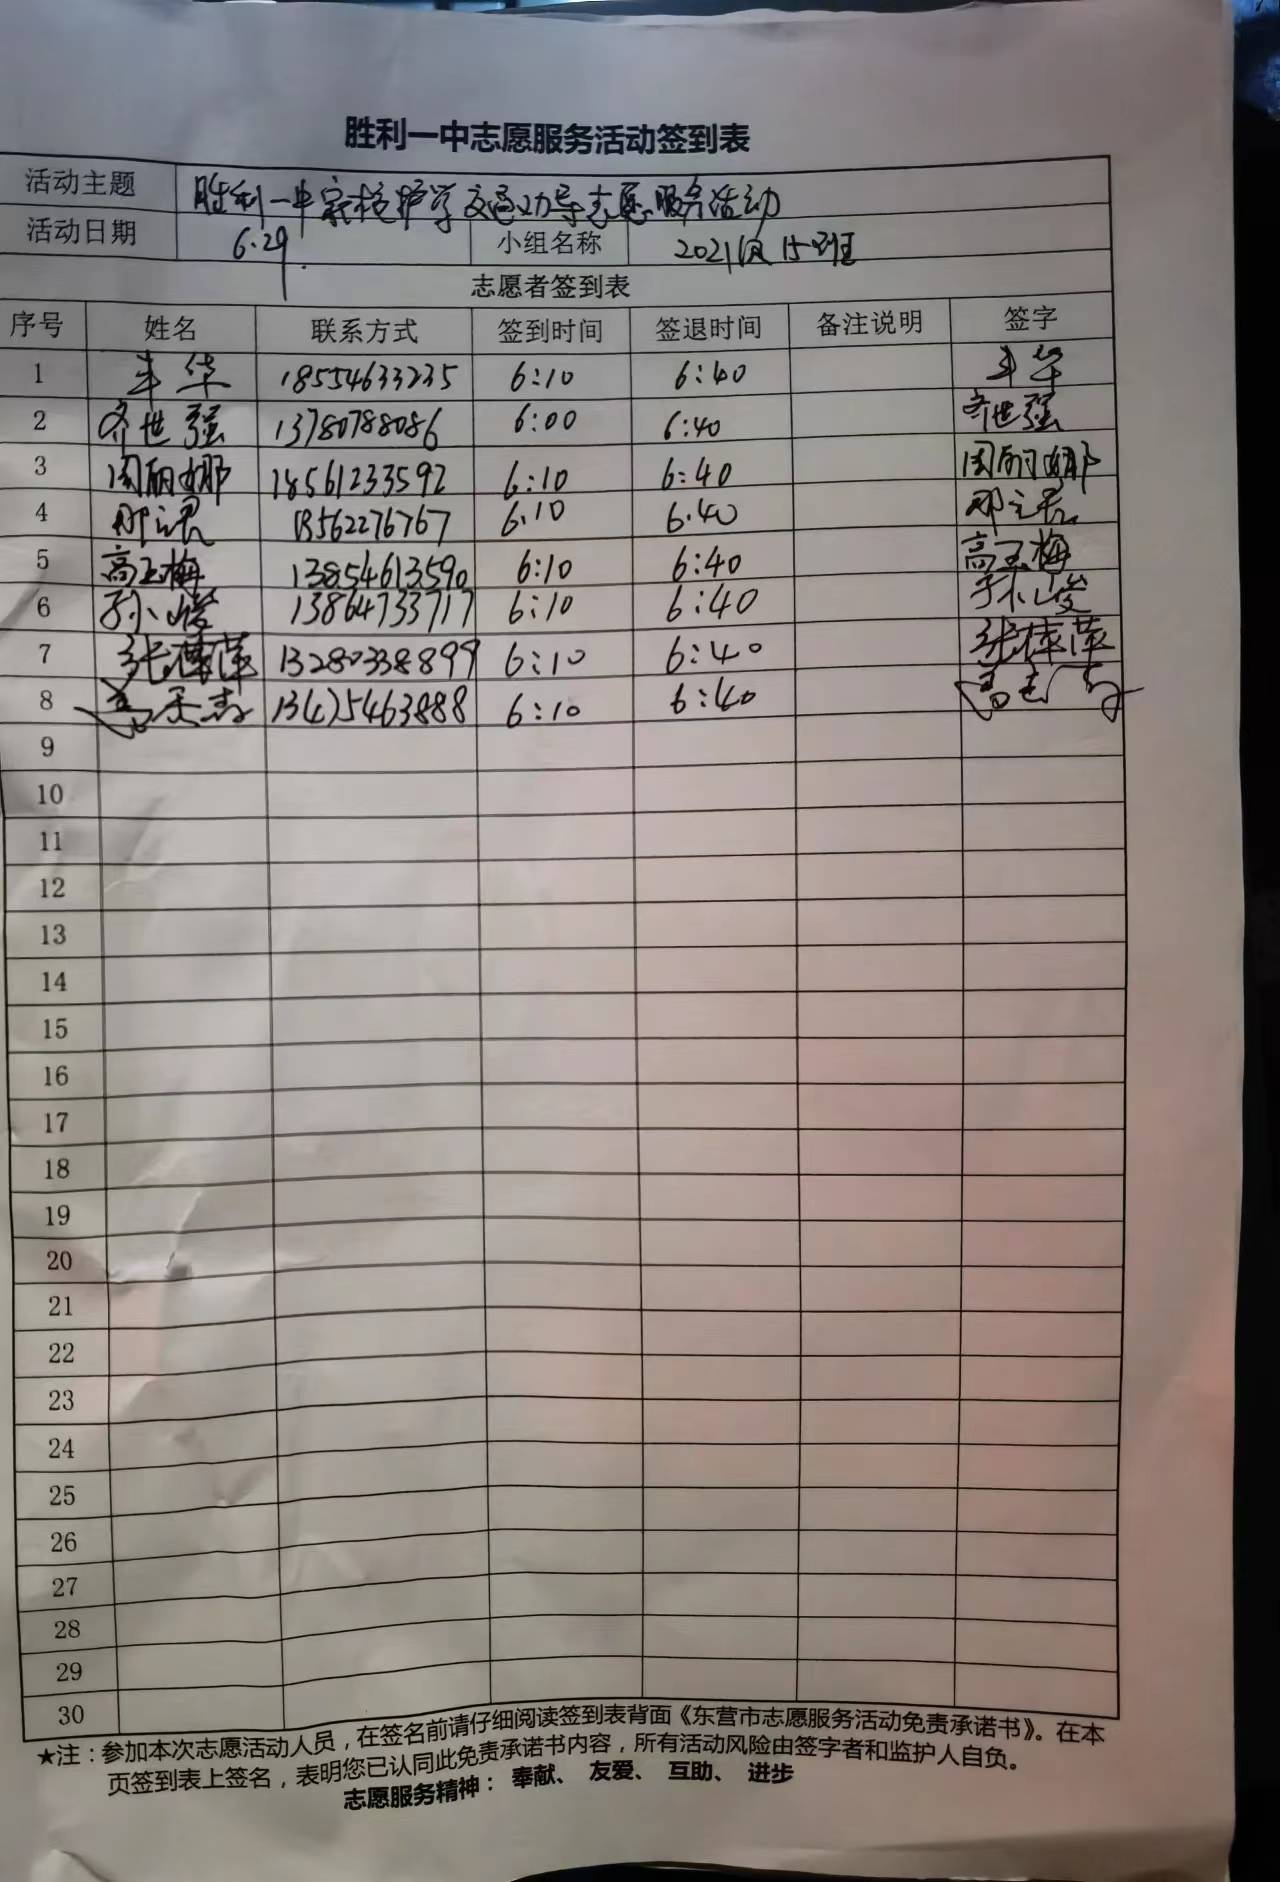 胜利一中志愿服务活动签到表
活动主题 胜利一中家校护学交通劝导志愿服务活动
活动日期 6.29. 小组名称 2021级15班
志愿者签到表
序号 姓名 联系方式 签到时间 签退时间 备注说明 签字
1 丰华 18554633235 6:10 6:40 丰华
2 齐世强 13780788086 6:00 6:40 齐世强
3 周丽娜 18561233592 6:10 6:40 周丽娜
4 13562276767 6.10 6.40
5 高玉梅 13854613590 6:10 6:40 高玉梅
6 孙峻 13864733717 6:10 6:40 孙峻
7 张棣萍 13280338899 6:10 6:40 张棣萍
8 13475463888 6:10 6:40
9
10
11
12
13
14
15
16
17
18
19
20
21
22
23
24
25
26
27
28
29
30
★注：参加本次志愿活动人员，在签名前请仔细阅读签到表背面《东营市志愿服务活动免责承诺书》。在本
页签到表上签名，表明您已认同此免责承诺书内容，所有活动风险由签字者和监护人自负。
志愿服务精神： 奉献、 友爱、 互助、 进步